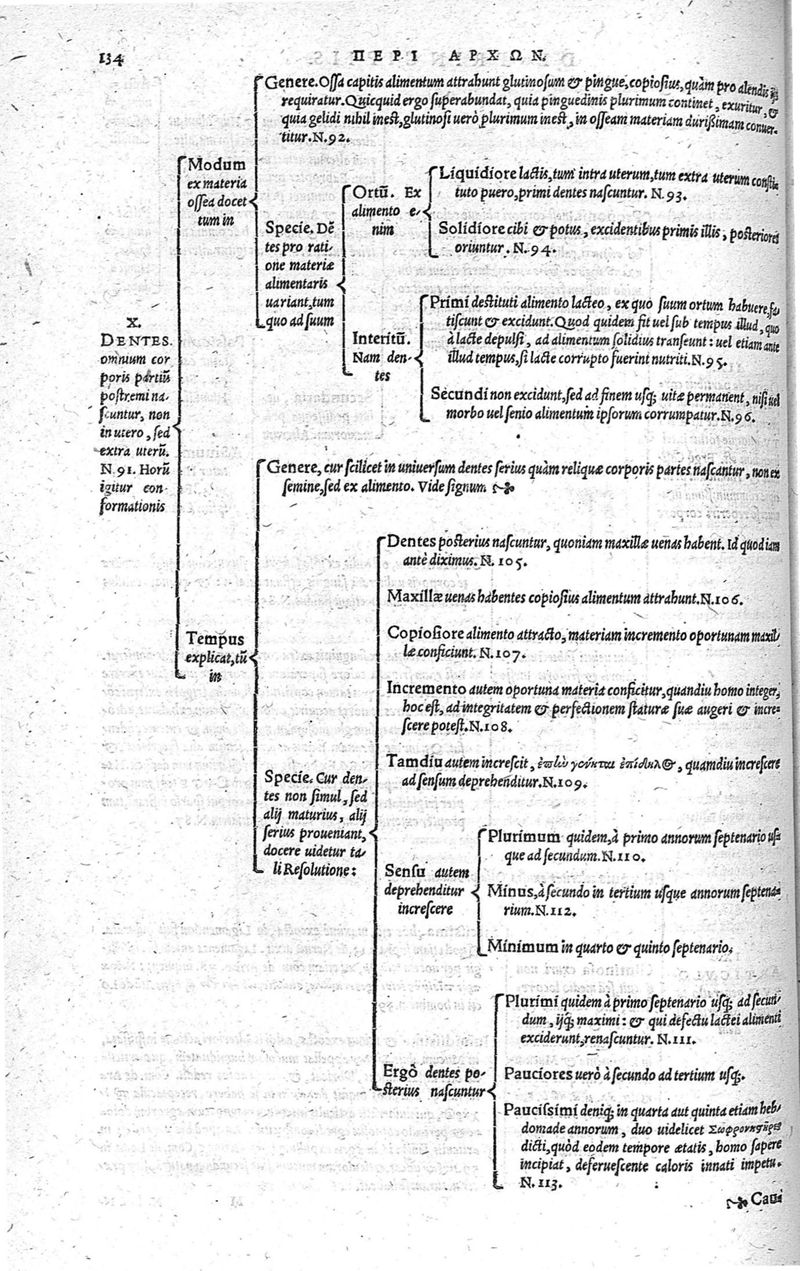 134
ΠΕΡΙ ΑΡΧΩΝ.
X.
DENTES.
omnium cor
poris partiũ
postremi na-
scuntur, non
in utero, sed
extra uterũ.
N. 91. Horũ
igitur con-
formationis
Modum
ex materia
ossea docet
tum in
Genere. Ossa capitis alimentum attrahunt glutinosum & pingue, copiosius, quàm pro alendis ijs
requiratur. Quicquid ergo superabundat, quia pinguedinis plurimum continet, exuritur, &
quia gelidi nihil inest, glutinosi uerò plurimum inest, in osseam materiam durißimam conuer-
titur. N. 92.
Specie. Dẽ
tes pro rati-
one materiæ
alimentaris
uariant, tum
quo ad suum
Ortũ. Ex
alimento e-
nim
Liquidiore lactis, tum intra uterum, tum extra uterum consti-
tuto puero, primi dentes nascuntur. N. 93.
Solidiore cibi & potus, excidentibus primis illis, posteriores
oriuntur. N. 94.
Interitũ.
Nam den-
tes
Primi destituti alimento lacteo, ex quo suum ortum habuere, fa-
tiscunt & excidunt. Quod quidem fit uel sub tempus illud, quo
à lacte depulsi, ad alimentum solidius transeunt: uel etiam ante
illud tempus, si lacte corrupto fuerint nutriti. N. 95.
Secundi non excidunt, sed ad finem usq; uitæ permanent, nisi uel
morbo uel senio alimentum ipsorum corrumpatur. N. 96.
Tempus
explicat, tũ
in
Genere, cur scilicet in uniuersum dentes serius quàm reliquæ corporis partes nascantur, non ex
semine, sed ex alimento. Vide signum ☙
Specie. Cur den-
tes non simul, sed
alij maturius, alij
serius proueniant,
docere uidetur ta-
li Resolutione:
Dentes posterius nascuntur, quoniam maxillæ uenas habent. Id quod iam
antè diximus. N. 105.
Maxillæ uenas habentes copiosius alimentum attrahunt. N. 106.
Copiosiore alimento attracto, materiam incremento oportunam maxil-
læ conficiunt. N. 107.
Incremento autem oportuna materia conficitur, quandiu homo integer,
hoc est, ad integritatem & perfectionem staturæ suæ augeri & incre-
scere potest. N. 108.
Tamdiu autem increscit, γούνεται ἐπίδηλ, quamdiu increscere
ad sensum deprehenditur. N. 109.
Sensu autem
deprehenditur
increscere
Plurimum quidem, à primo annorum septenario us-
que ad secundum. N. 110.
Minus, à secundo in tertium usque annorum septena-
rium. N. 112.
Minimum in quarto & quinto septenario.
Ergò dentes po-
sterius nascuntur
Plurimi quidem à primo septenario usq; ad secun-
dum, ijq; maximi: & qui defectu lactei alimenti
exciderunt, renascuntur. N. 111.
Pauciores uerò à secundo ad tertium usq;.
Paucissimi deniq; in quarta aut quinta etiam heb-
domade annorum, duo uidelicet Σωφρονιστῆρες
dicti, quòd eodem tempore ætatis, homo sapere
incipiat, deferuescente caloris innati impetu.
N. 113.
☙ Causa